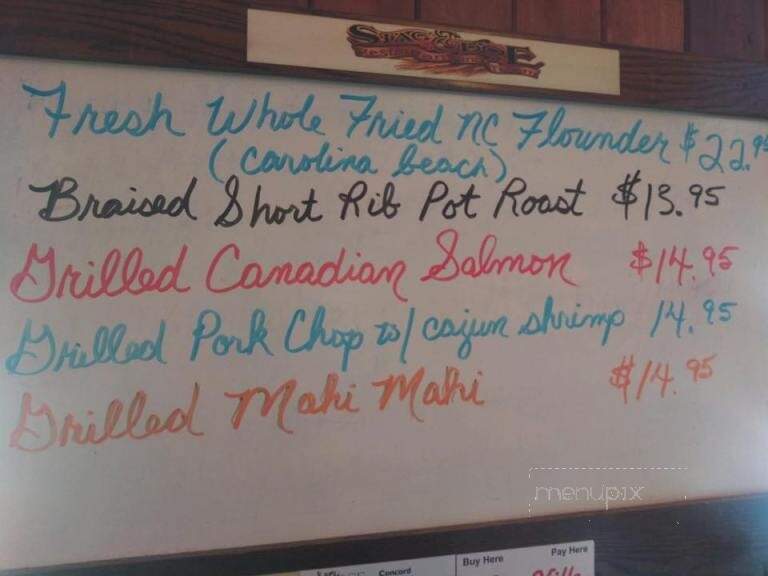 Fresh Whole Fried NC Flounder $22.95
(Carolina beach)
Braised Short Rib Pot Roast $13.95
Grilled Canadian Salmon $14.95
Grilled Pork Chop w/ cajun shrimp 14.95
Grilled Mahi Mahi $14.95
menupix
Concord
Buy Here Pay Here